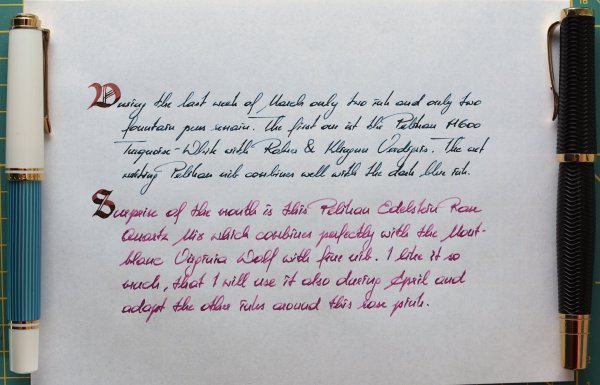 During the last week of March only two ink and only two
fountain pens remain. The first one ist the Pelikan M600
Turquoise-White with Rohrer & Klingner Verdigris. The wet
writing Pelikan nib combines well with the dark blue ink.
Surprise of the month is this Pelikan Edelstein Rose
Quartz Mix which combines perfectly with the Mont-
blanc Virginia Wolf with fine nib. I like it so
much, that I will use it also during April and
adapt the other inks around this rose pink.